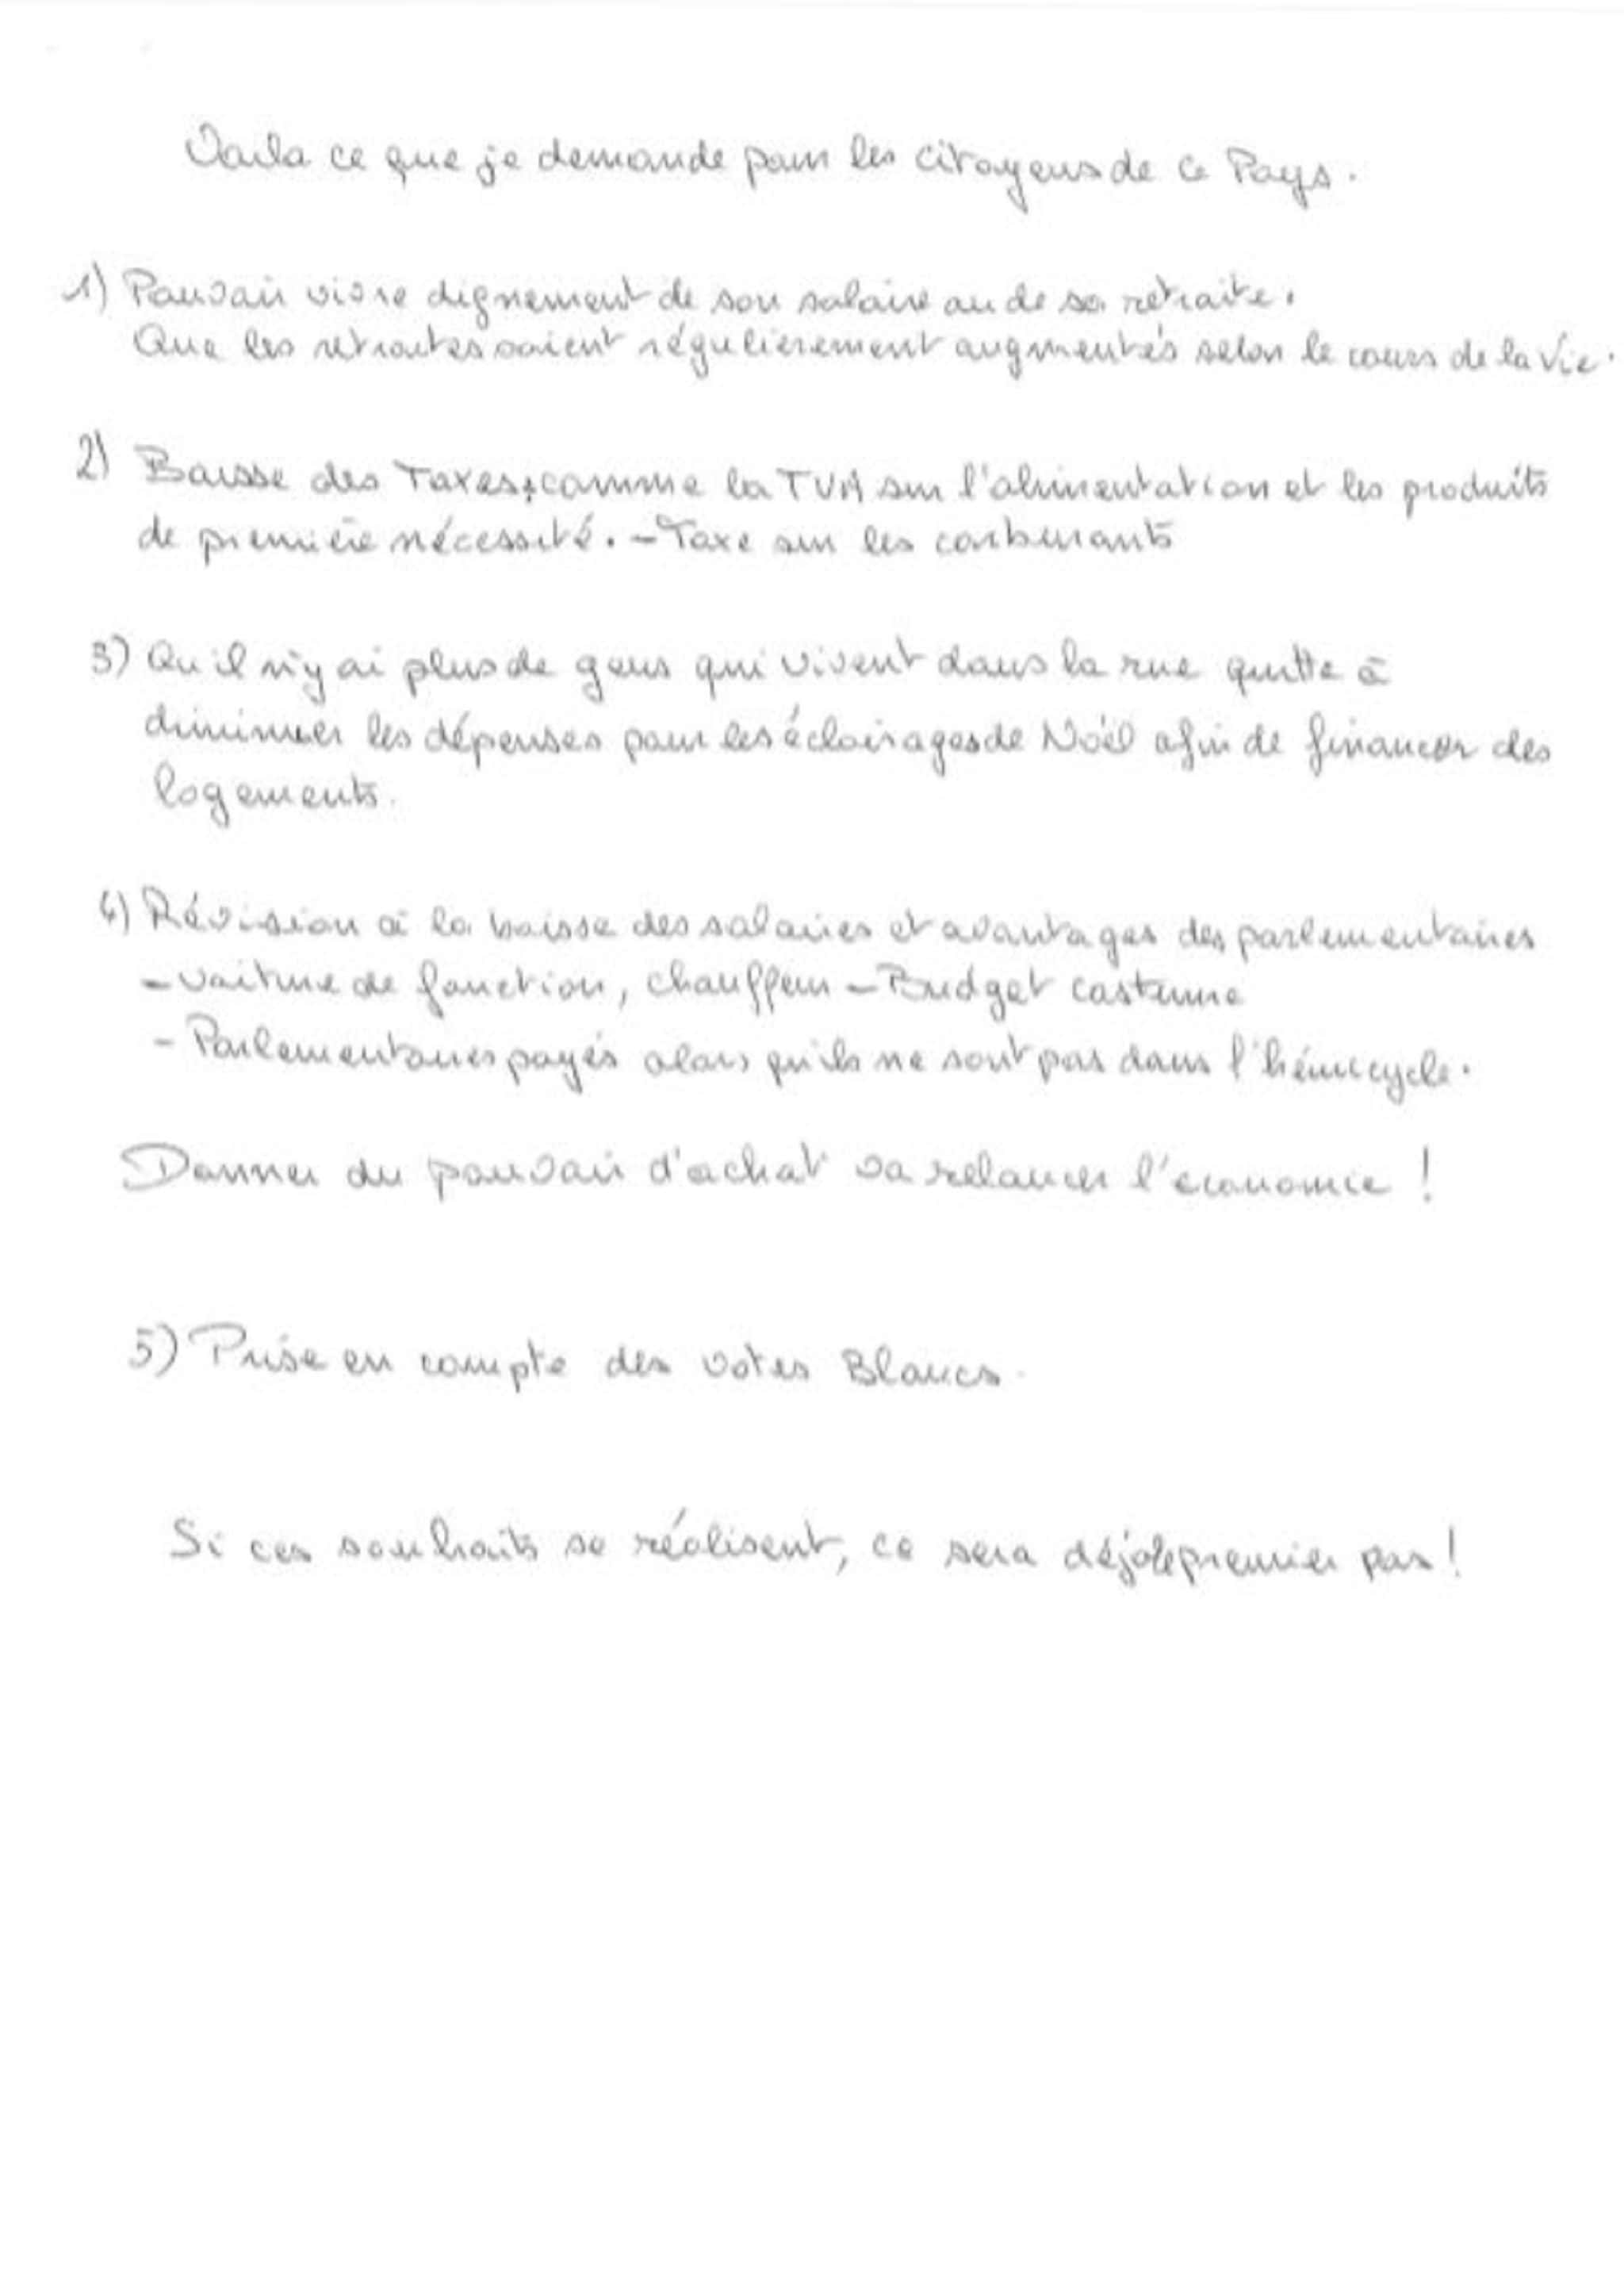 Voila ce que je demande pour les citoyens de ce Pays.
1) Pouvoir vivre dignement de son salaire ou de sa retraite.
Que les retraites soient régulierement augmentés selon le cours de la Vie.
2) Baisse des Taxes, comme la TVA sur l'alimentation et les produits
de première nécessité. - Taxe sur les carburants
3) Qu'il n'y ai plus de gens qui vivent dans la rue quitte à
diminuer les dépenses pour les éclairages de Noël afin de financer des
logements.
4) Révision à la baisse des salaires et avantages des parlementaires
- voiture de fonction, chauffeur - Budget costume
- Parlementaires payés alors qu'ils ne sont pas dans l'hémicycle.
Donner du pouvoir d'achat va relancer l'economie !
5) Prise en compte des votes Blancs.
Si ces souhaits se réalisent, ce sera déjà le premier pas !